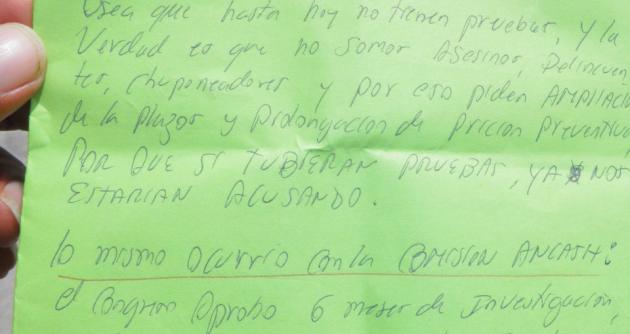 Osea que hasta hoy no tienen pruebas, y la
Verdad es que no somos Asesinos, Delincuen
tes, chuponeadores y por eso piden AMPLIACIO
de la plazos y Prolongación de Pricion Preventiva
POR QUE SI TUBIERAN PRUEBAS, YA NOS
ESTARIAN ACUSANDO.
lo mismo ocurrio con la COMISION ANCASH:
el Congreso Aprobo 6 meses de Investigación,